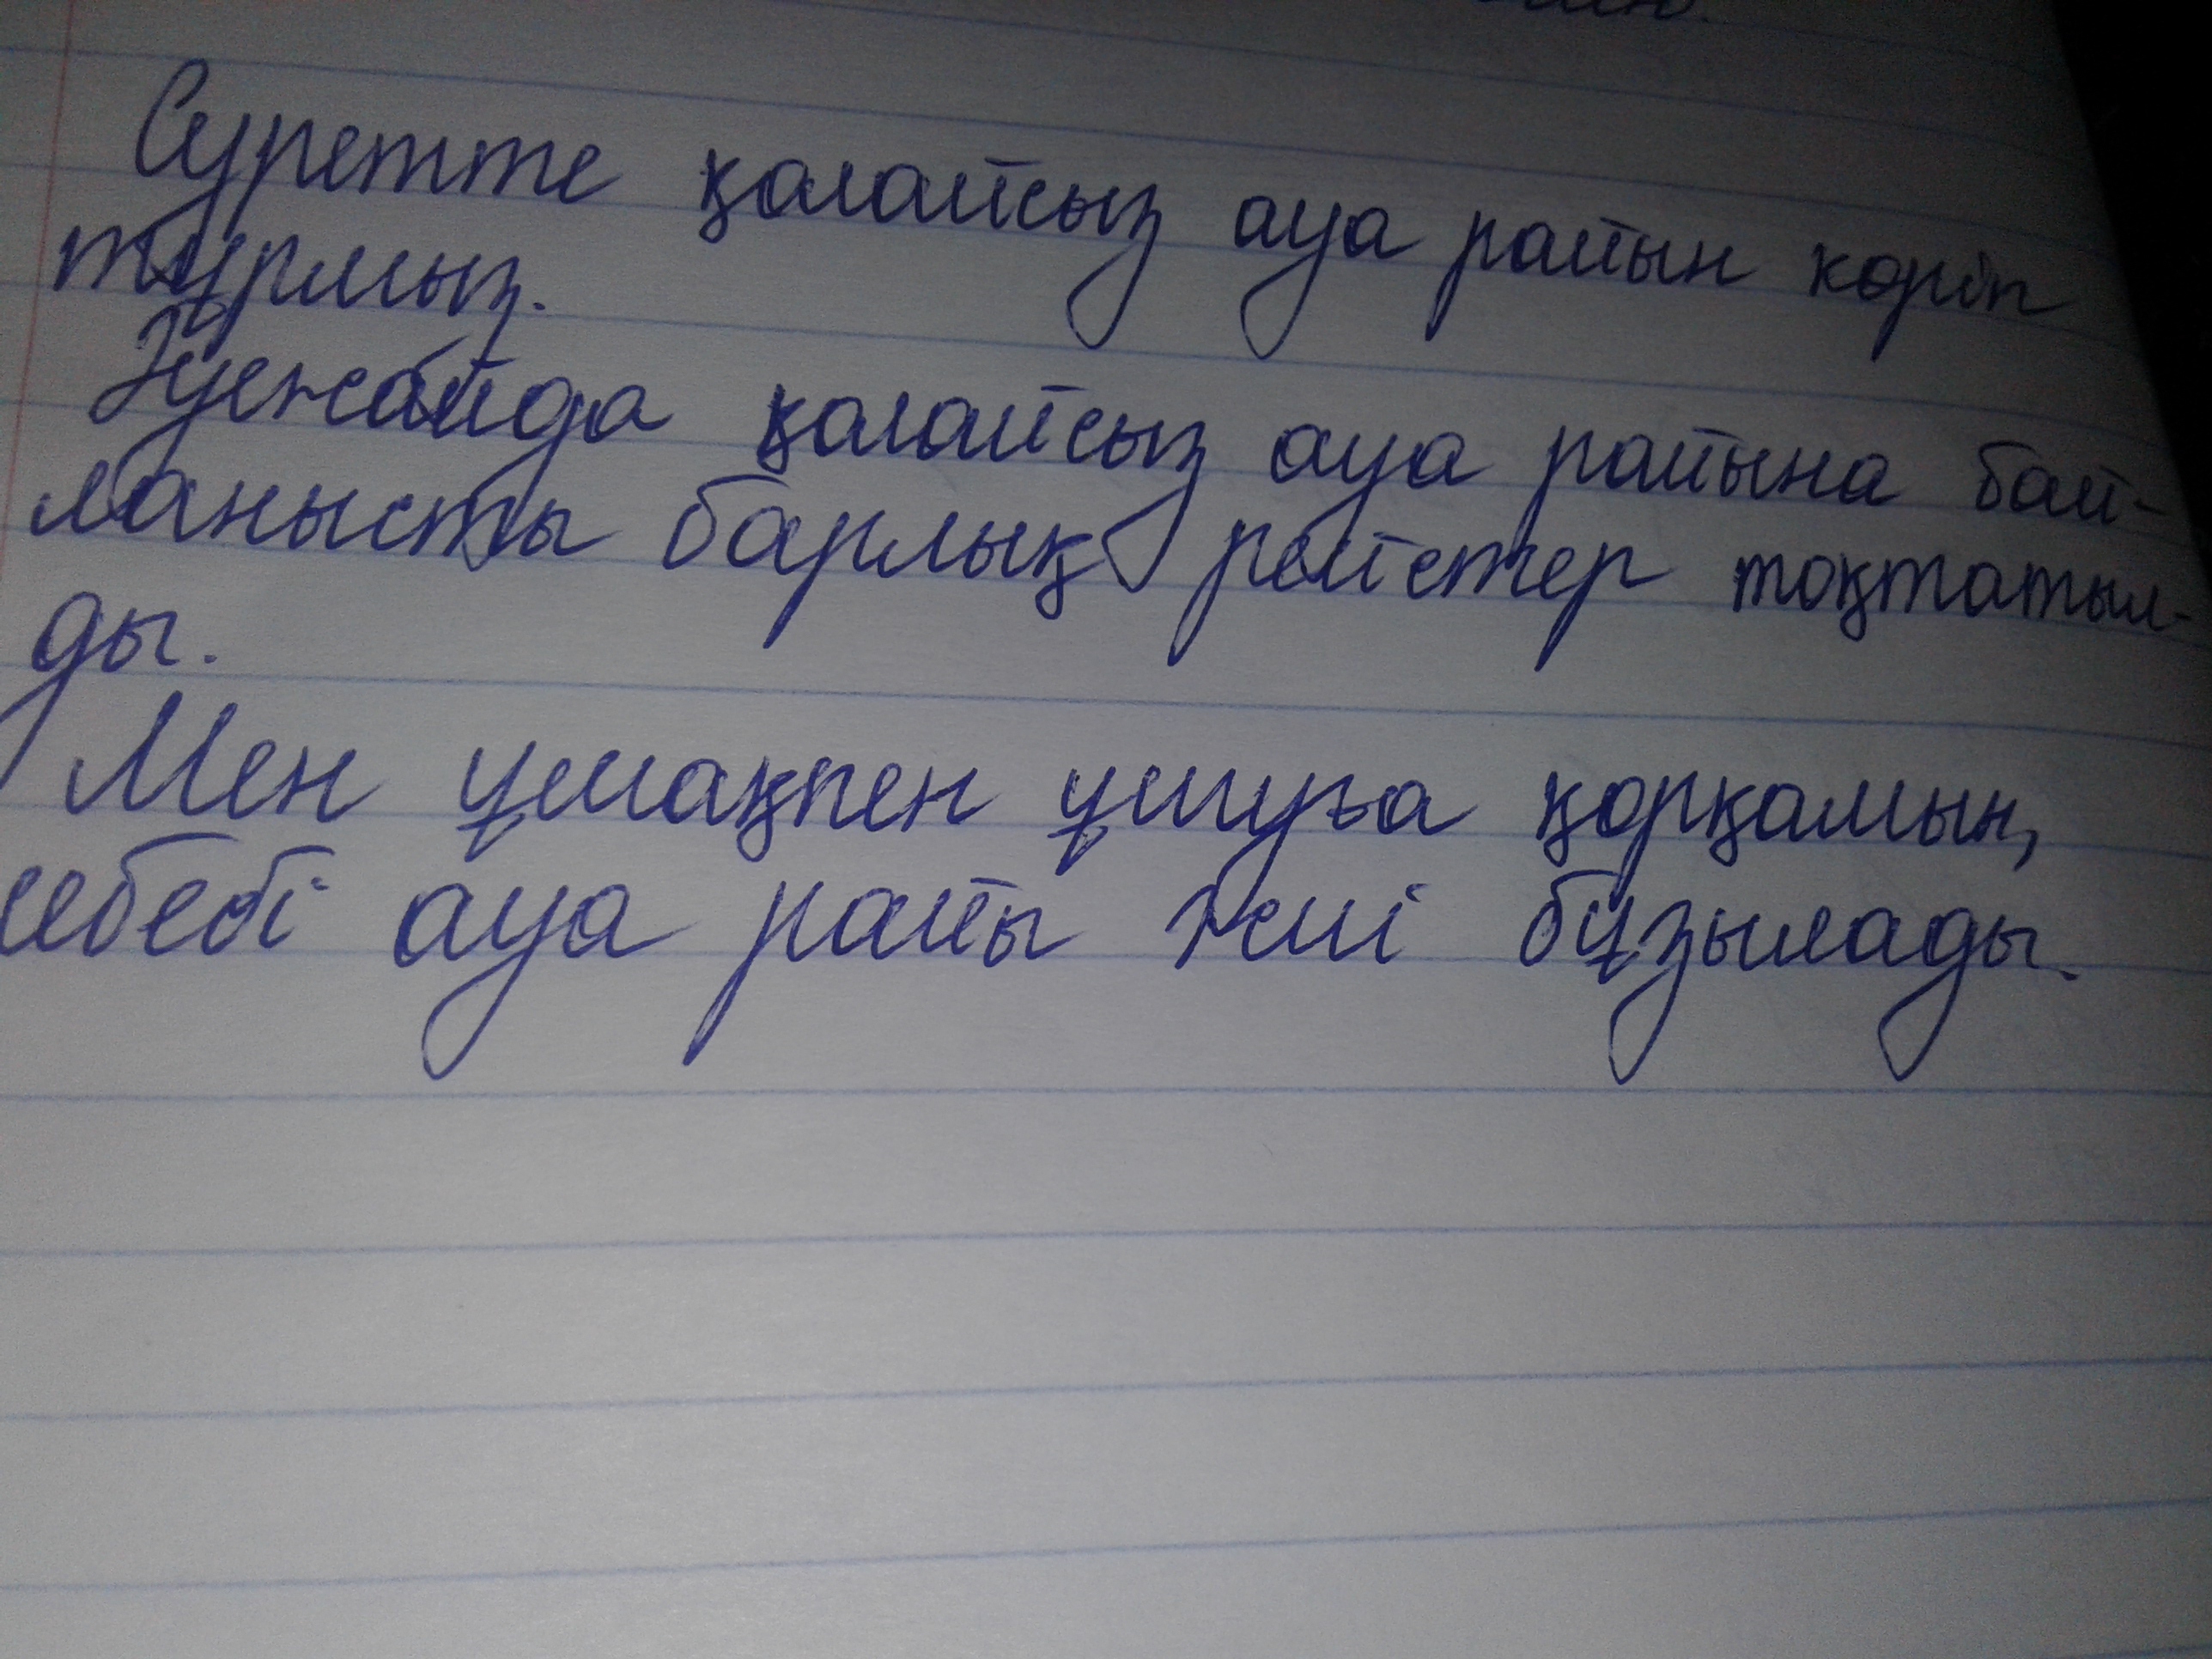 Суретте қолайсыз ауа райын көріп
тұрмыз.
Әуежайда қолайсыз ауа райына бай-
ланысты барлық рейстер тоқтатыл-
ды.
Мен ұшақпен ұшуға қорқамын,
себебі ауа райы жиі бұзылады.